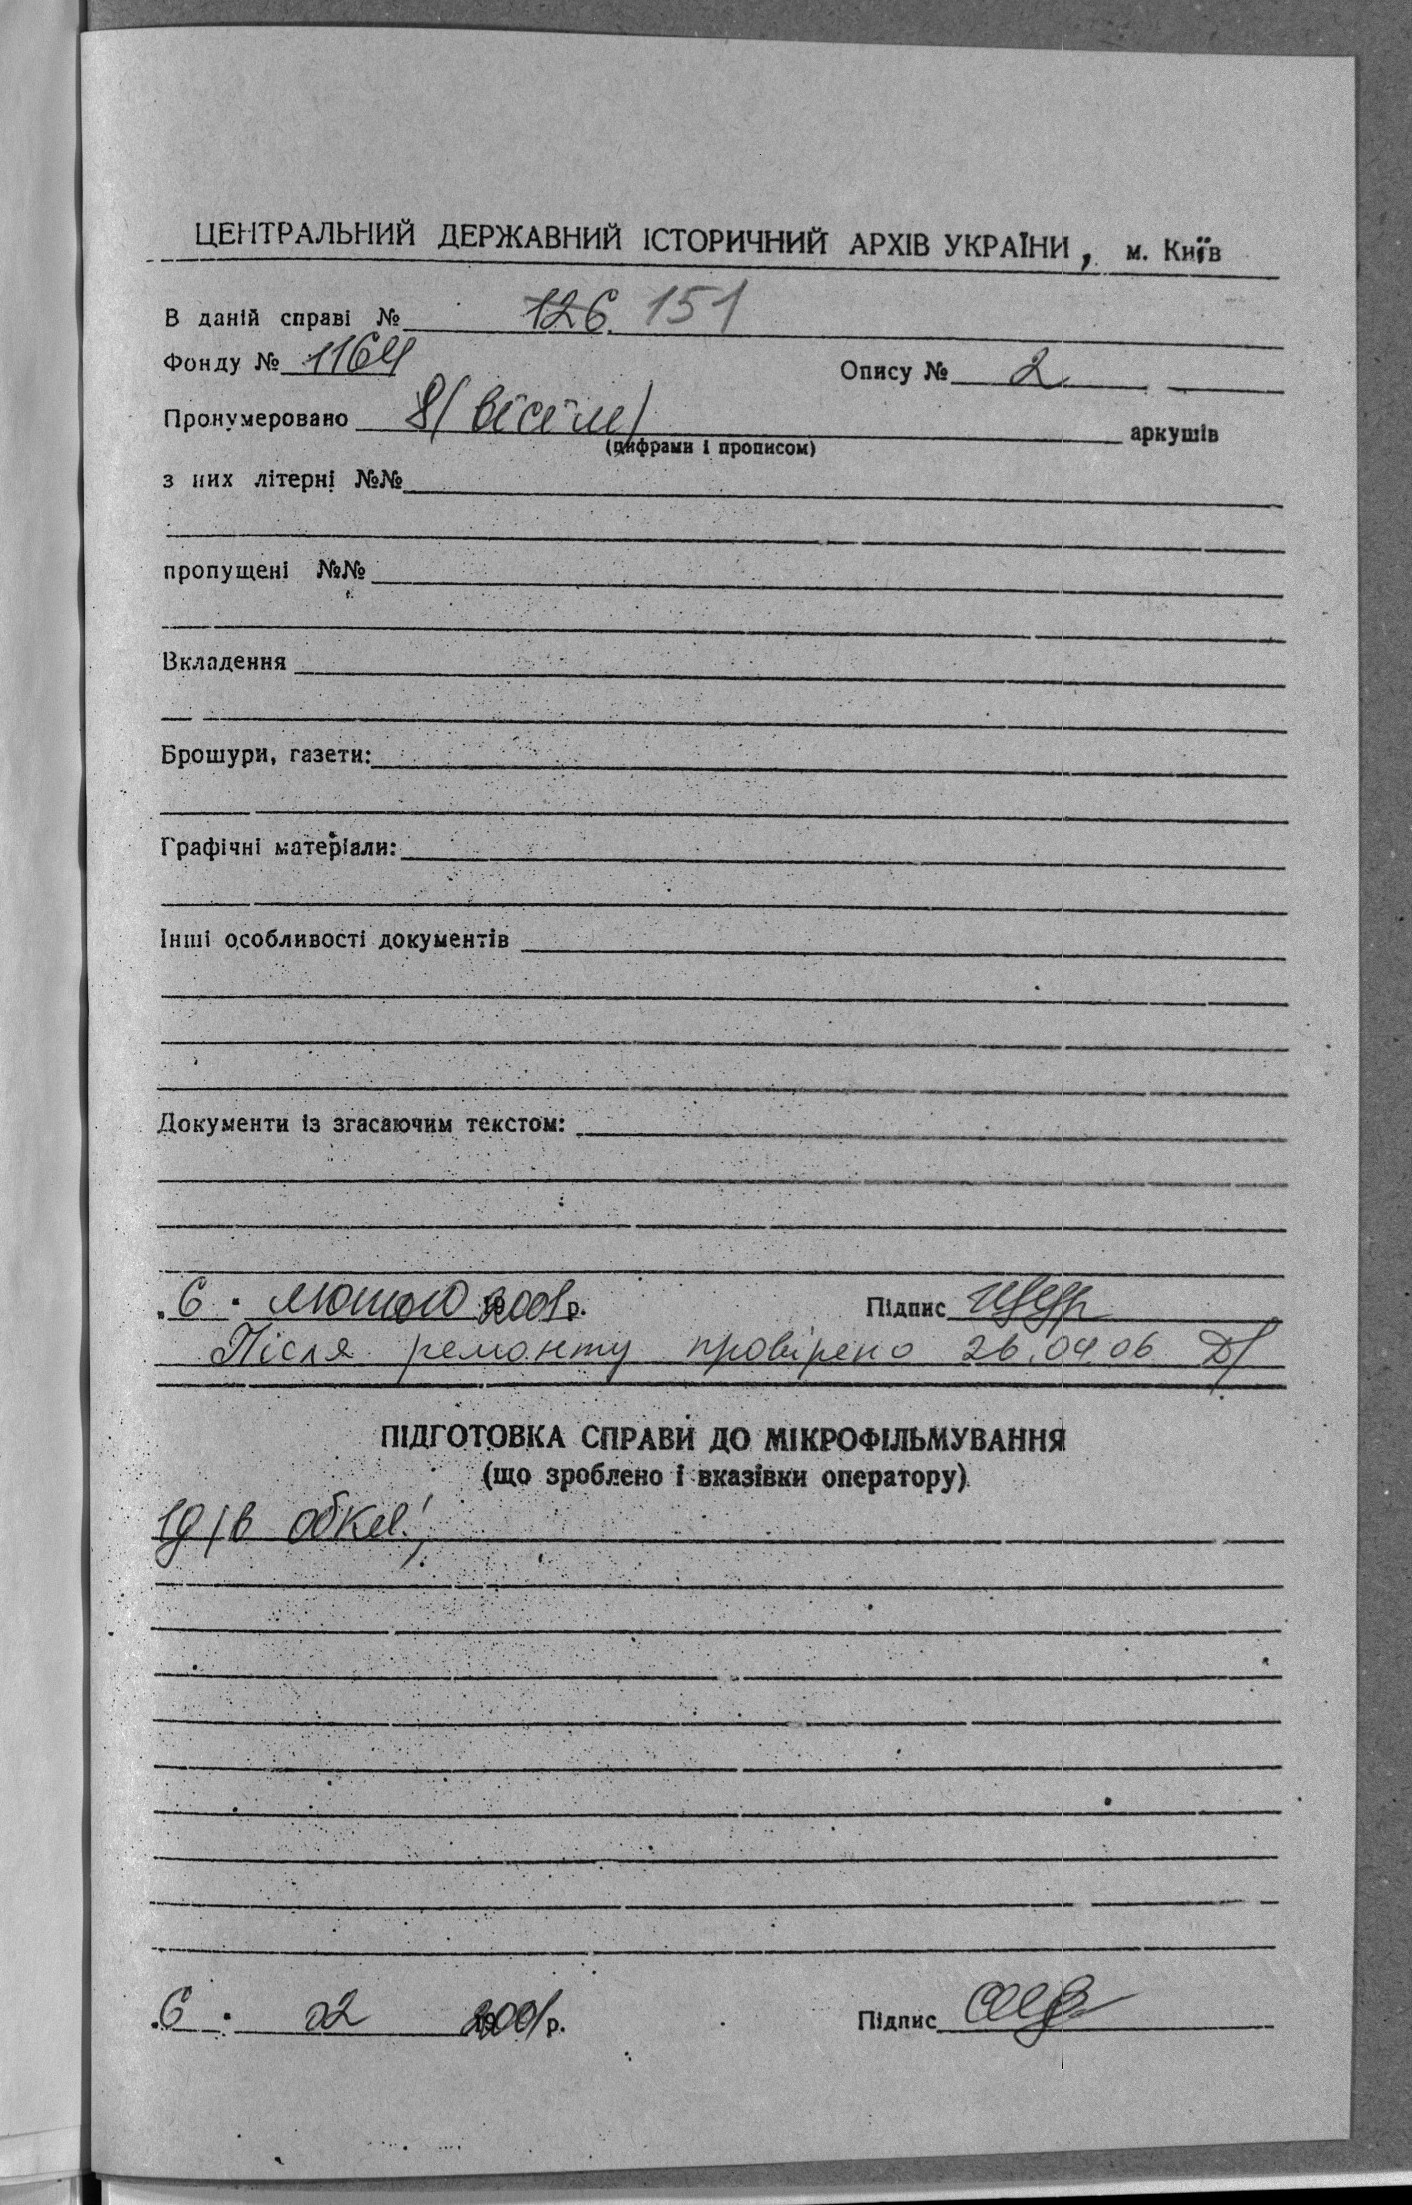 ЦЕНТРАЛЬНИЙ ДЕРЖАВНИЙ ІСТОРИЧНИЙ АРХІВ УКРАЇНИ, м. Київ
В даній справі № 126. 151
Фонду № 1164 Опису № 2
Пронумеровано 8 (вісім) аркушів
(цифрами і прописом)
з них літерні №№
пропущені №№
Вкладення
Брошури, газети:
Графічні матеріали:
Інші особливості документів
Документи із згасаючим текстом:
„6" лютого 2001 р. Підпис
Після ремонту провірено 26.04.06
ПІДГОТОВКА СПРАВИ ДО МІКРОФІЛЬМУВАННЯ
(що зроблено і вказівки оператору)
в обкл.
„6" 02 2001 р. Підпис